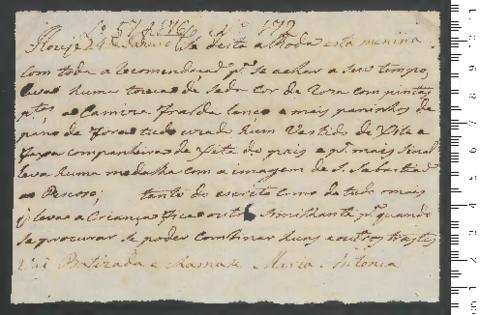 Lo 57 Af 166 No 172
Hoje 24 de Se deita a Roda esta menina
com toda a recomendação pª se achar a seu tempo,
leva huma touca de seda Cor de Roza com pintas
ptas, a Camiza Fralda lenço e mais paninhos de
pano de fora tudo uzado hum Vestido de Xita e
Faxa companheira de Xita do pais e pª mais sinal
leva huma medalha com a imagem de S. Sebastião
ao Pescoso; tanto do escrito como da tudo mais
q leva a Criança fica outo Similhante pª quando
se procurar se poder Combinar huns e outros trastes
Vai Batizada e chamase Maria Antonia